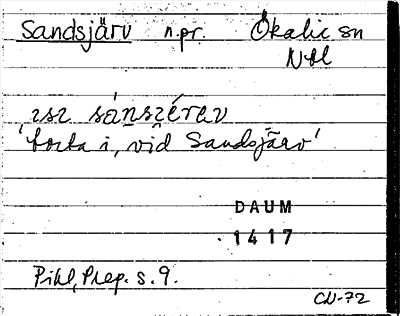 Sandsjärv n.pr. Ökalix sn
Nbl
ısı sánszérav
'borta i, vid Sandsjärv'
DAUM
1417
Pihl, Prep. s. 9.
CW-72